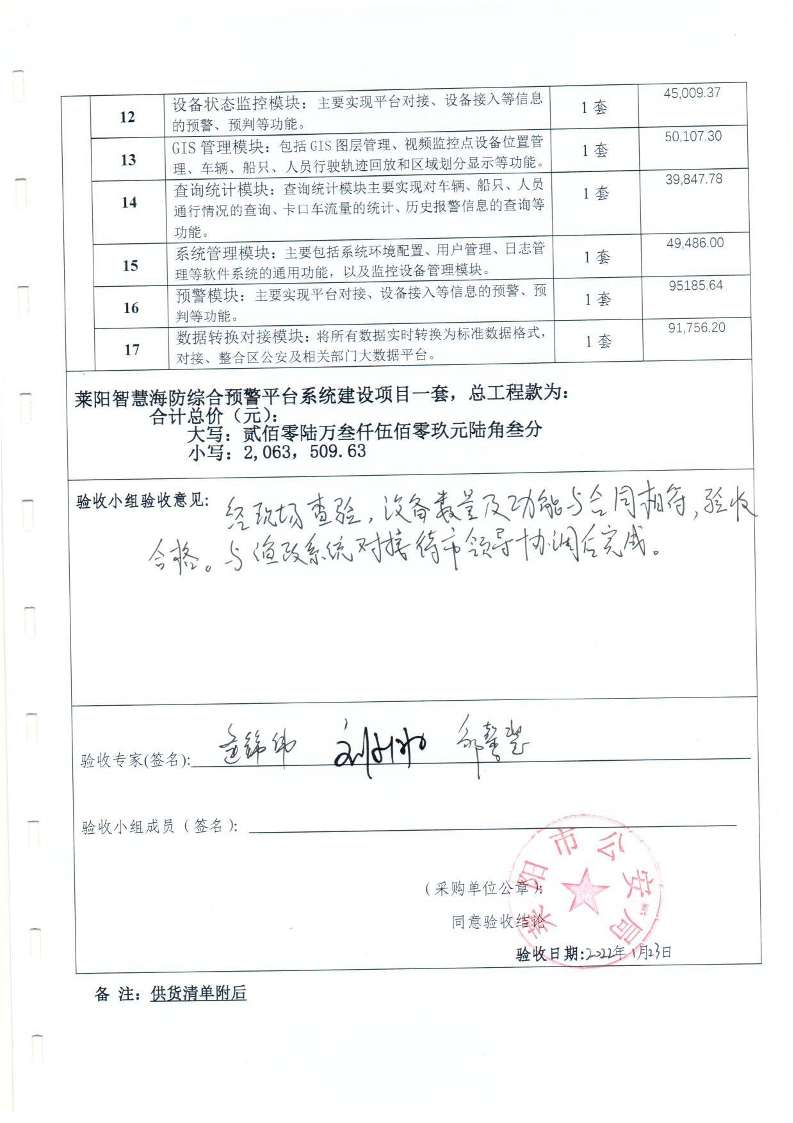 12 设备状态监控模块：主要实现平台对接、设备接入等信息 1 套 45,009.37
的预警、预判等功能。
13 GIS 管理模块：包括 GIS 图层管理、视频监控点设备位置管 1 套 50,107.30
理、车辆、船只、人员行驶轨迹回放和区域划分显示等功能。
14 查询统计模块：查询统计模块主要实现对车辆、船只、人员 1 套 39,847.78
通行情况的查询、卡口车流量的统计、历史报警信息的查询等
功能。
15 系统管理模块：主要包括系统环境配置、用户管理、日志管 1 套 49,486.00
理等软件系统的通用功能，以及监控设备管理模块。
16 预警模块：主要实现平台对接、设备接入等信息的预警、预 1 套 95185.64
判等功能。
17 数据转换对接模块：将所有数据实时转换为标准数据格式， 1 套 91,756.20
对接、整合区公安及相关部门大数据平台。
莱阳智慧海防综合预警平台系统建设项目一套，总工程款为：
合计总价（元）：
大写：贰佰零陆万叁仟伍佰零玖元陆角叁分
小写：2,063，509.63
验收小组验收意见：经现场查验，设备数量及功能与合同相符，验收
合格。与渔政系统对接待市领导协调后完成。
验收专家(签名):
验收小组成员（签名）：
（采购单位公章）：
同意验收结论
验收日期:2022年1月23日
莱阳市公安局
备 注：供货清单附后